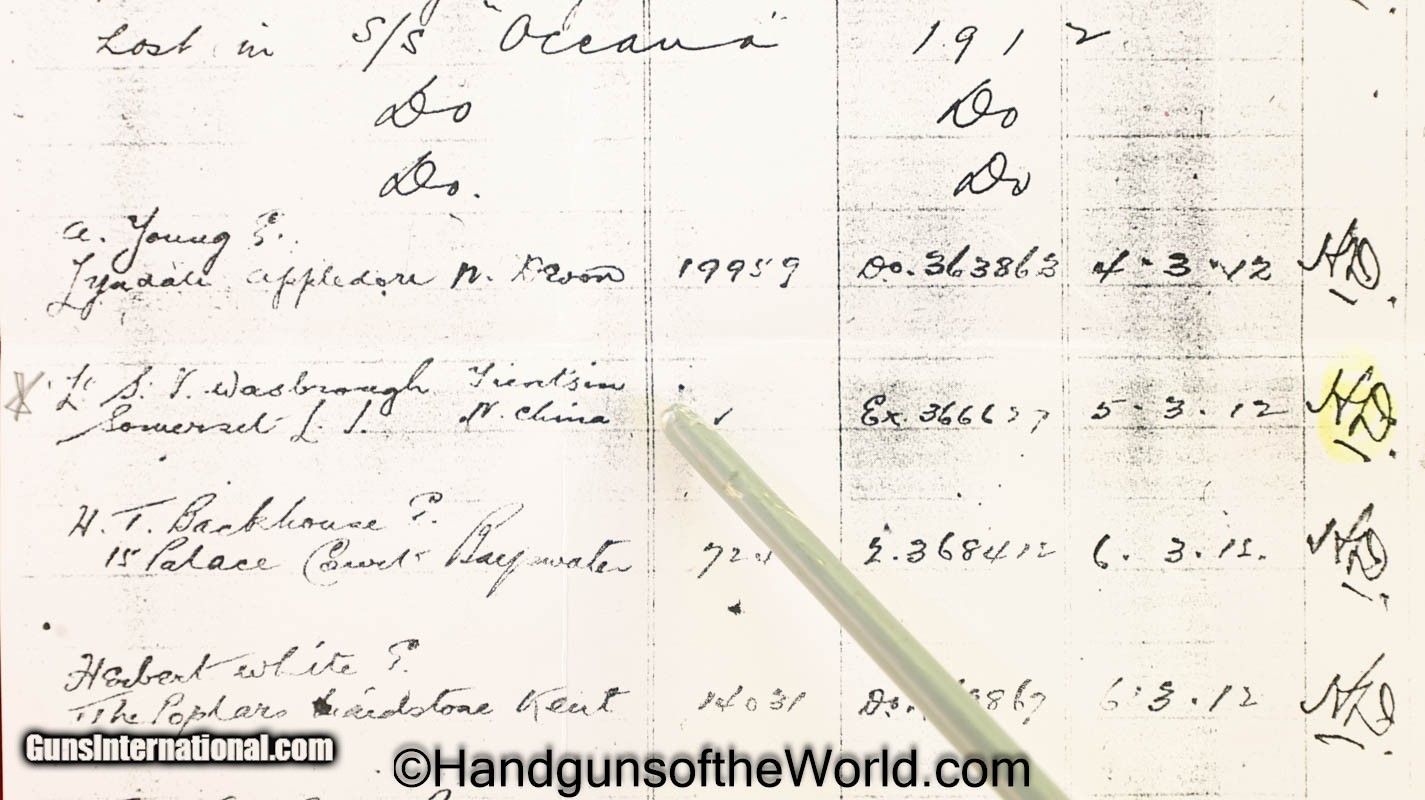 Lost in S/S "Oceana" 1912
Do Do
Do. Do
A. Young
Appledore N. Devon 19959 Do. 363863 4.3.12
Lt. S. V. Wasbrough Tientsin
Somerset L. I. N. China Ex. 3666 5.3.12
H. T. Backhouse
15 Palace Court Bayswater 72 368412 6.3.12.
Herbert White
The Poplars Maidstone Kent 14031 Do. 867 6.3.12
GunsInternational.com
©HandgunsoftheWorld.com